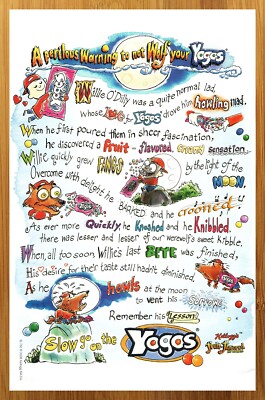 A perilous Warning to not Wolf your Yogos
Willie O'Dilly was a quite normal lad,
whose for Yogos drove him howling mad.
When he first poured them in sheer fascination,
he discovered a fruit-flavored, creamy sensation...
Willie quickly grew FANGS by the light of the MOON.
Overcome with delight he BARKED and he crooned!
As ever more Quickly he Gnoshed and he Knibbled.
there was lesser and lesser of our werewolf's sweet Kribble.
When, all too soon, Willie's last BITE was finished,
His desire for their taste still hadn't diminished.
As he howls at the moon
to vent his Sorrows,
Remember his Lesson:
Slow go on the Yogos
Kellogg's